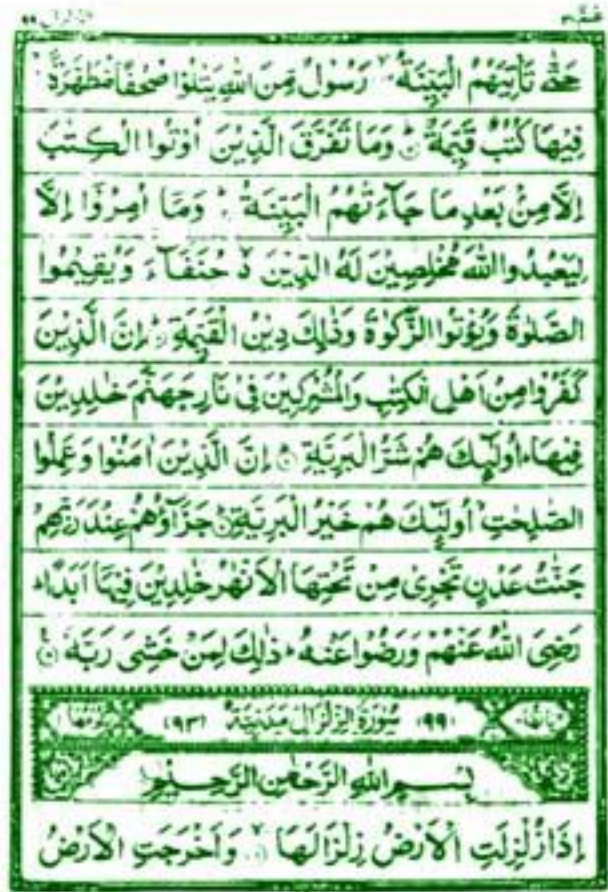 الزلزال ٩٩
عمّ ٣٠
حَتّٰى تَاْتِيَهُمُ الْبَيِّنَةُ ۙ رَسُوْلٌ مِّنَ اللّٰهِ يَتْلُوْا صُحُفًا مُّطَهَّرَةً ۙ
فِيْهَا كُتُبٌ قَيِّمَةٌ ؕ وَمَا تَفَرَّقَ الَّذِيْنَ اُوْتُوا الْكِتٰبَ
اِلَّا مِنْۢ بَعْدِ مَا جَآءَتْهُمُ الْبَيِّنَةُ ؕ وَمَاۤ اُمِرُوْۤا اِلَّا
لِيَعْبُدُوا اللّٰهَ مُخْلِصِيْنَ لَهُ الدِّيْنَ ۙ حُنَفَآءَ وَيُقِيْمُوا
الصَّلٰوةَ وَيُؤْتُوا الزَّكٰوةَ وَذٰلِكَ دِيْنُ الْقَيِّمَةِ ؕ اِنَّ الَّذِيْنَ
كَفَرُوْا مِنْ اَهْلِ الْكِتٰبِ وَالْمُشْرِكِيْنَ فِيْ نَارِ جَهَنَّمَ خٰلِدِيْنَ
فِيْهَا ؕ اُولٰٓئِكَ هُمْ شَرُّ الْبَرِيَّةِ ؕ اِنَّ الَّذِيْنَ اٰمَنُوْا وَعَمِلُوا
الصّٰلِحٰتِ ۙ اُولٰٓئِكَ هُمْ خَيْرُ الْبَرِيَّةِ ؕ جَزَآؤُهُمْ عِنْدَ رَبِّهِمْ
جَنّٰتُ عَدْنٍ تَجْرِيْ مِنْ تَحْتِهَا الْاَنْهٰرُ خٰلِدِيْنَ فِيْهَاۤ اَبَدًا ؕ
رَضِيَ اللّٰهُ عَنْهُمْ وَرَضُوْا عَنْهُ ؕ ذٰلِكَ لِمَنْ خَشِيَ رَبَّهٗ
(٩٩) سُوْرَةُ الزِّلْزَالِ مَدَنِيَّةٌ (٩٣)
بِسْمِ اللّٰهِ الرَّحْمٰنِ الرَّحِيْمِ
اِذَا زُلْزِلَتِ الْاَرْضُ زِلْزَالَهَا ۙ وَاَخْرَجَتِ الْاَرْضُ